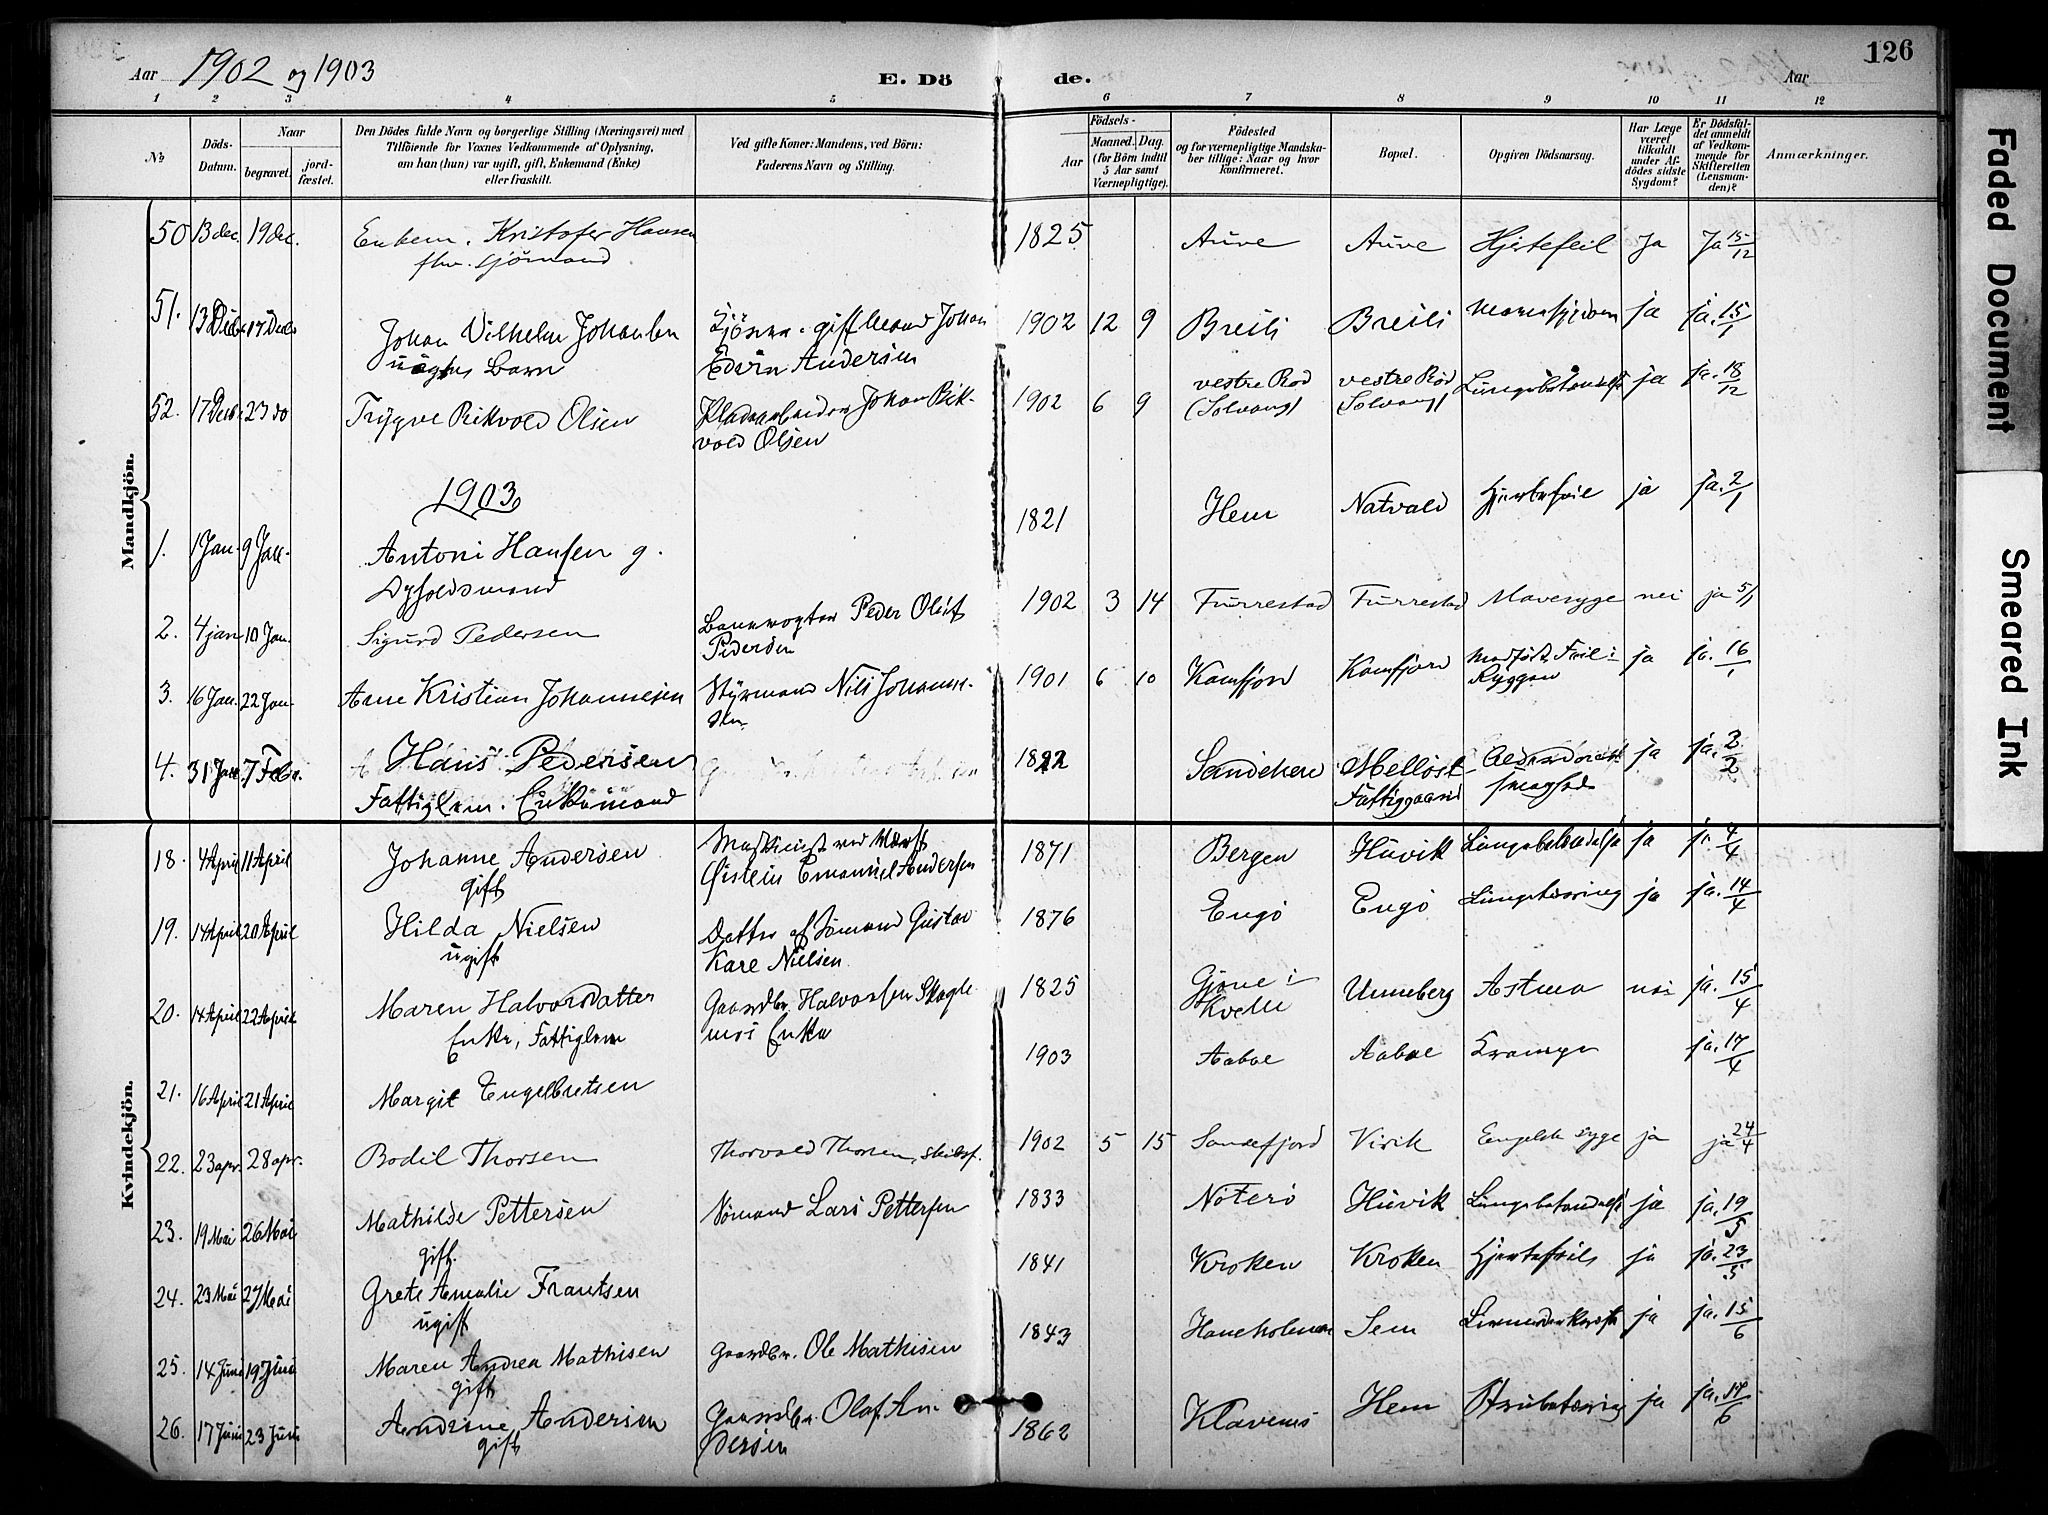 Aar 1902 og 1903 E. Dö de. Aar 126
1 2 3 4 5 6 7 8 9 10 11 12
№
Döds-Datum.
Naar
begravet.
jord-fæstet.
Den Dödes fulde Navn og borgerlige Stilling (Næringsvei) med
Tilföiende for Voxnes Vedkommende af Oplysning,
om han (hun) var ugift, gift, Enkemand (Enke)
eller fraskilt.
Ved gifte Koner: Mandens, ved Börn:
Faderens Navn og Stilling.
Födsels-
Aar
Maaned. Dag.
(for Börn indtil
5 Aar samt
Værnepligtige).
Födested
og for værnepligtige Mandska-
ber tillige: Naar og hvor
konfirmeret.
Bopæl.
Opgiven Dödsaarsag.
Har Læge
været
tilkaldt
under Af-
dödes sidste
Sygdom?
Er Dödsfal-
det anmeldt
af Vedkom-
mende for
Skifteretten
(Lensman-
den)?
Anmærkninger.
Mandkjön.
50 13 dec. 19 dec. Enkem. Kristofer Hansen 1825 Auve Auve Hjertefeil Ja Ja 15/12
fhv. sjömand
51. 13 Decbr 17 Decbr Johan Vilhelm Johansen gift Mand Johan 1902 12 9 Breili Breili ja ja. 15/1
uægte Barn Edvin Andersen
52. 17 Decbr 23 do Trygve Rikvold Olsen Pladsarbeider Johan Rik- 1902 6 9 vestre Rød vestre Rød Lungebetændelse ja ja. 18/12
vold Olsen (Solvang) (Solvang)
1903
1. 1 Jan. 9 Jan. Antoni Hansen g. 1821 Hem Natvald Hjertefeil ja ja. 2/1
Opholdsmand
2. 4 jan 10 Jan. Sigurd Pedersen Banevogter Peder Oluf 1902 3 14 Furrestad Furrestad Mavesyge nei ja 5/1
Pedersen
3. 16 Jan. 22 Jan. Arne Kristian Johannesen Styrmand Nils Johanne- 1901 6 10 Kamfjord Kamfjord Medfødt Feil i ja ja. 16/1
sen Ryggen
4. 31 Jan. 7 Febr. Hans Pedersen 1822 Sandeherr Melløst ja ja. 2/2
Fattiglem. Enkemand Fattiggaard
Kvindekjön.
18. 4 April 11 April Johanne Andersen Maskinist ved Værft 1871 Bergen Huvik Lungebetændelse ja ja. 4/4
gift Øistein Emanuel Andersen
19. 14 April 20 April Hilda Nielsen Datter af Sømand Gustav 1876 Engø Engø Lungetæring ja ja. 14/4
ugift Kare Nielsen
20. 14 April 22 April Maren Halvorsdatter Gaardbr. Halvorsen Skogle 1825 Gjone i Unneberg Astma nei ja. 15/4
Enke, Fattiglem moi Enke Kvelle
21. 16 April 21 April Margit Engelbretsen 1903 Aaboe Aaboe Krampe ja. 17/4
22. 23 apr. 28 apr. Bodil Thorsen Thorvald Thorsen, 1902 5 15 Sandefjord Virik Engelsk syge ja ja 24/4
23. 19 Mai 26 Mai Mathilde Pettersen Sømand Lars Pettersen 1833 Nøterø Huvik Lungebetændelse ja ja. 19/5
gift.
24. 23 Mai 27 Mai Grete Amalie Frantsen 1841 Kroken Kroken Hjertefeil ja ja. 23/5
ugift
25. 14 Juni 19 Juni Maren Andrea Mathisen Gaardbr. Ole Mathisen 1843 Haneholmen Sem Livmoderkræft ja ja. 15/6
gift
26. 17 Juni 23 Juni Andrine Andersen Gaardbr. Olaf An- 1862 Klavenes Hem Strubetæring ja ja. 17/6
gift dersen
Faded Document
Smeared Ink